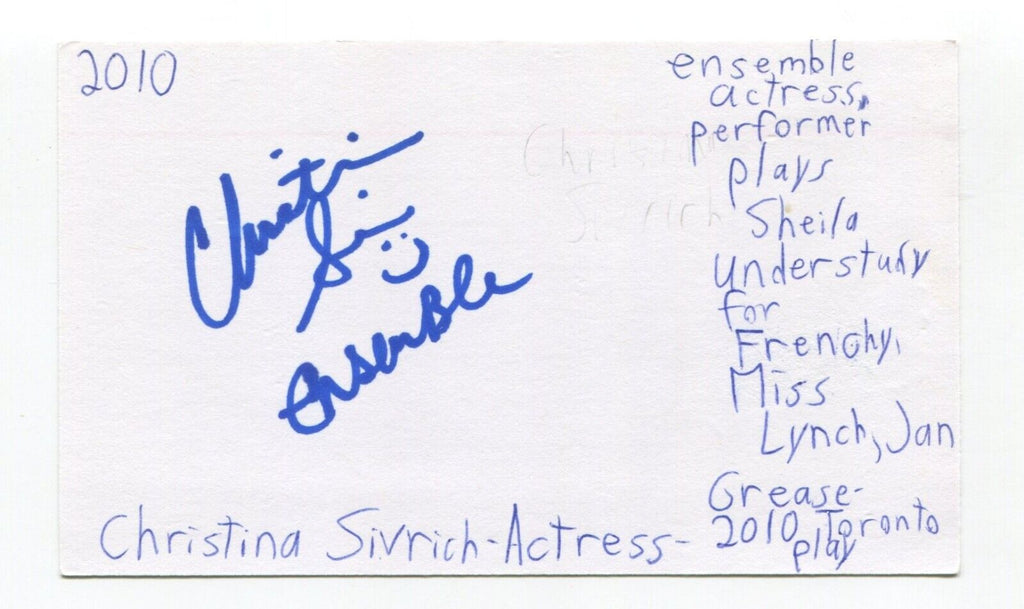 2010
Christi
Si
Ensemble
Christina
Sivrich
ensemble
actress,
performer
plays
Sheila
understudy
for
Frenchy,
Miss
Lynch, Jan
Grease-
2010 Toronto
play
Christina Sivrich-Actress-